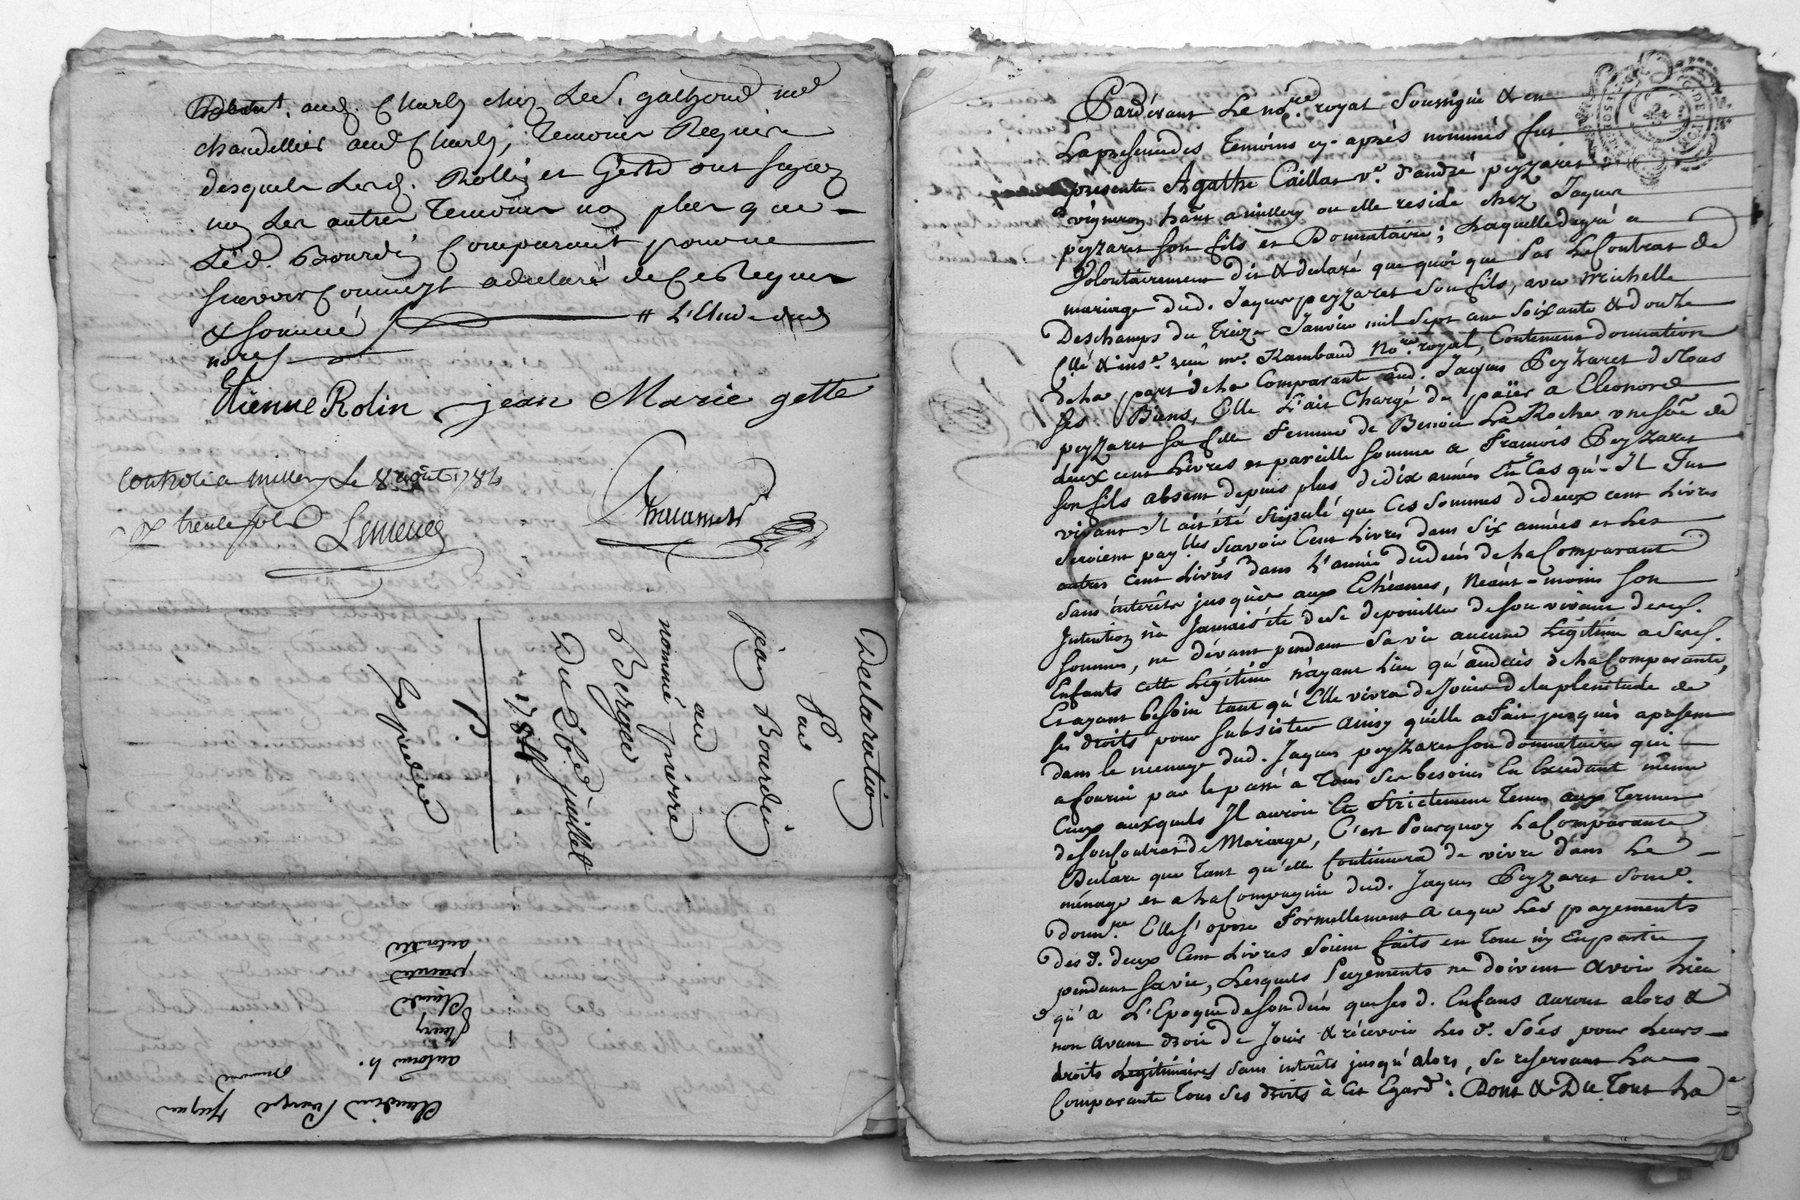 aud. Charly chez Led. galhond md
chandellier aud Charly, Temoins Requis
desquels Lesd. Rollin et Gette ont signé
non Les autres Temoins non plus que
Led. Bourdin Comparant pour ne
sçavoir comme yl a declaré de ce Requis
& sommé
Etienne Rolin jean Marie gette
Controlé a millery Le 8 aoust 1784
trente sols
Declaration
par
jean Bourdin
aud
nommé prieur
Bergeu
Du juillet
1784
Expediée
Claudine
antoine h.
fleury
Claude
Pardevant Le nore. royal Soussigné & en
La presence des Temoins cy-aprés nommés fut
presente Agathe Caillat ve. d'andré peyzaret
vigneron hant a millery ou elle reside chez Jaques
peyzaret son fils et Donnataire; Laquelle de gré a
Volontairement dit & declaré que quoi que Par Le Contrat de
mariage dud. Jaques peyzaret son fils, avec Michelle
Deschamps du Treize Janvier mil Sept cent Soixante & douze
reçu me. Rambaud Nore. royal, Contenant donnation
de La part de La Comparante aud. Jaques Peyzaret de tous
ses Biens, Elle L'ait Chargé de païer a Eleonore
peyzaret sa fille Femme de Benoit La Roche une sôe de
deux cent Livres et pareille Somme a Francois Peyzaret
son fils absent depuis plus de dix années En Cas qu'Il Fut
vivant Il ait été stipulé que Ces Sommes de deux cent Livres
seroient paybles sçavoir Cent Livres dans Six années et Les
autres Cent Livres dans L'année du deces de La Comparante
Sans intérêts jusques aux Echéances, Neant-moins son
Intention n'a Jamais été de Se depouiller de Son vivant desd.
Sommes, ne devant pendant Sa vie aucune Légitime a Sesd.
Enfants cette Légitime n'ayant Lieu qu'au deces de La Comparante,
Et ayant besoin tant qu'Elle vivra de Jouir de la plenitude de
ses droits pour Subsister ainsy qu'elle a Fait jusques apresent
dans le menage dud. Jaques peyzaret son donnataire qui
a fourni par le passé a Tous Ses besoins En Excedant même
Ceux auxquels Il auroit été Strictement Tenu aux Termes
de Son Contrat de Mariage, C'est Pourquoy La Comparante
Declare que Tant qu'elle Continuera de vivre dans Le
ménage et a La Compagnie dud. Jaques Peyzaret Son
donnre Elle S'opose Formellement a ce que Les payements
des d. deux Cent Livres Soient faits en Tout ny En partie
pendant Sa vie, Lesquels Payements ne doivent avoir Lieu
qu'a L'Epoque de Son deces que Ses d. Enfans auront alors &
non avant droit de Jouir & récevoir Les d. Sôes pour Leurs
droits Légitimaires Sans intérêts jusqu'alors, Se reservant La
Comparante Tous Ses droits à Cet Egard: Dont & Du Tout La